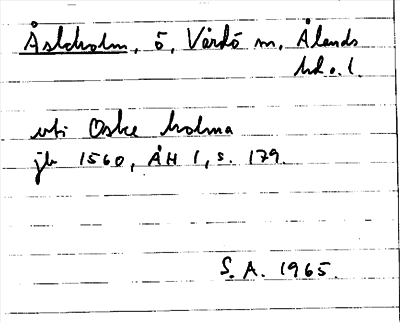 Åskholm, ö, Vårdö sn, Ålands
hd o. l.
uti Oske holma
jb 1560, ÅH 1, s. 179.
S. A. 1965.